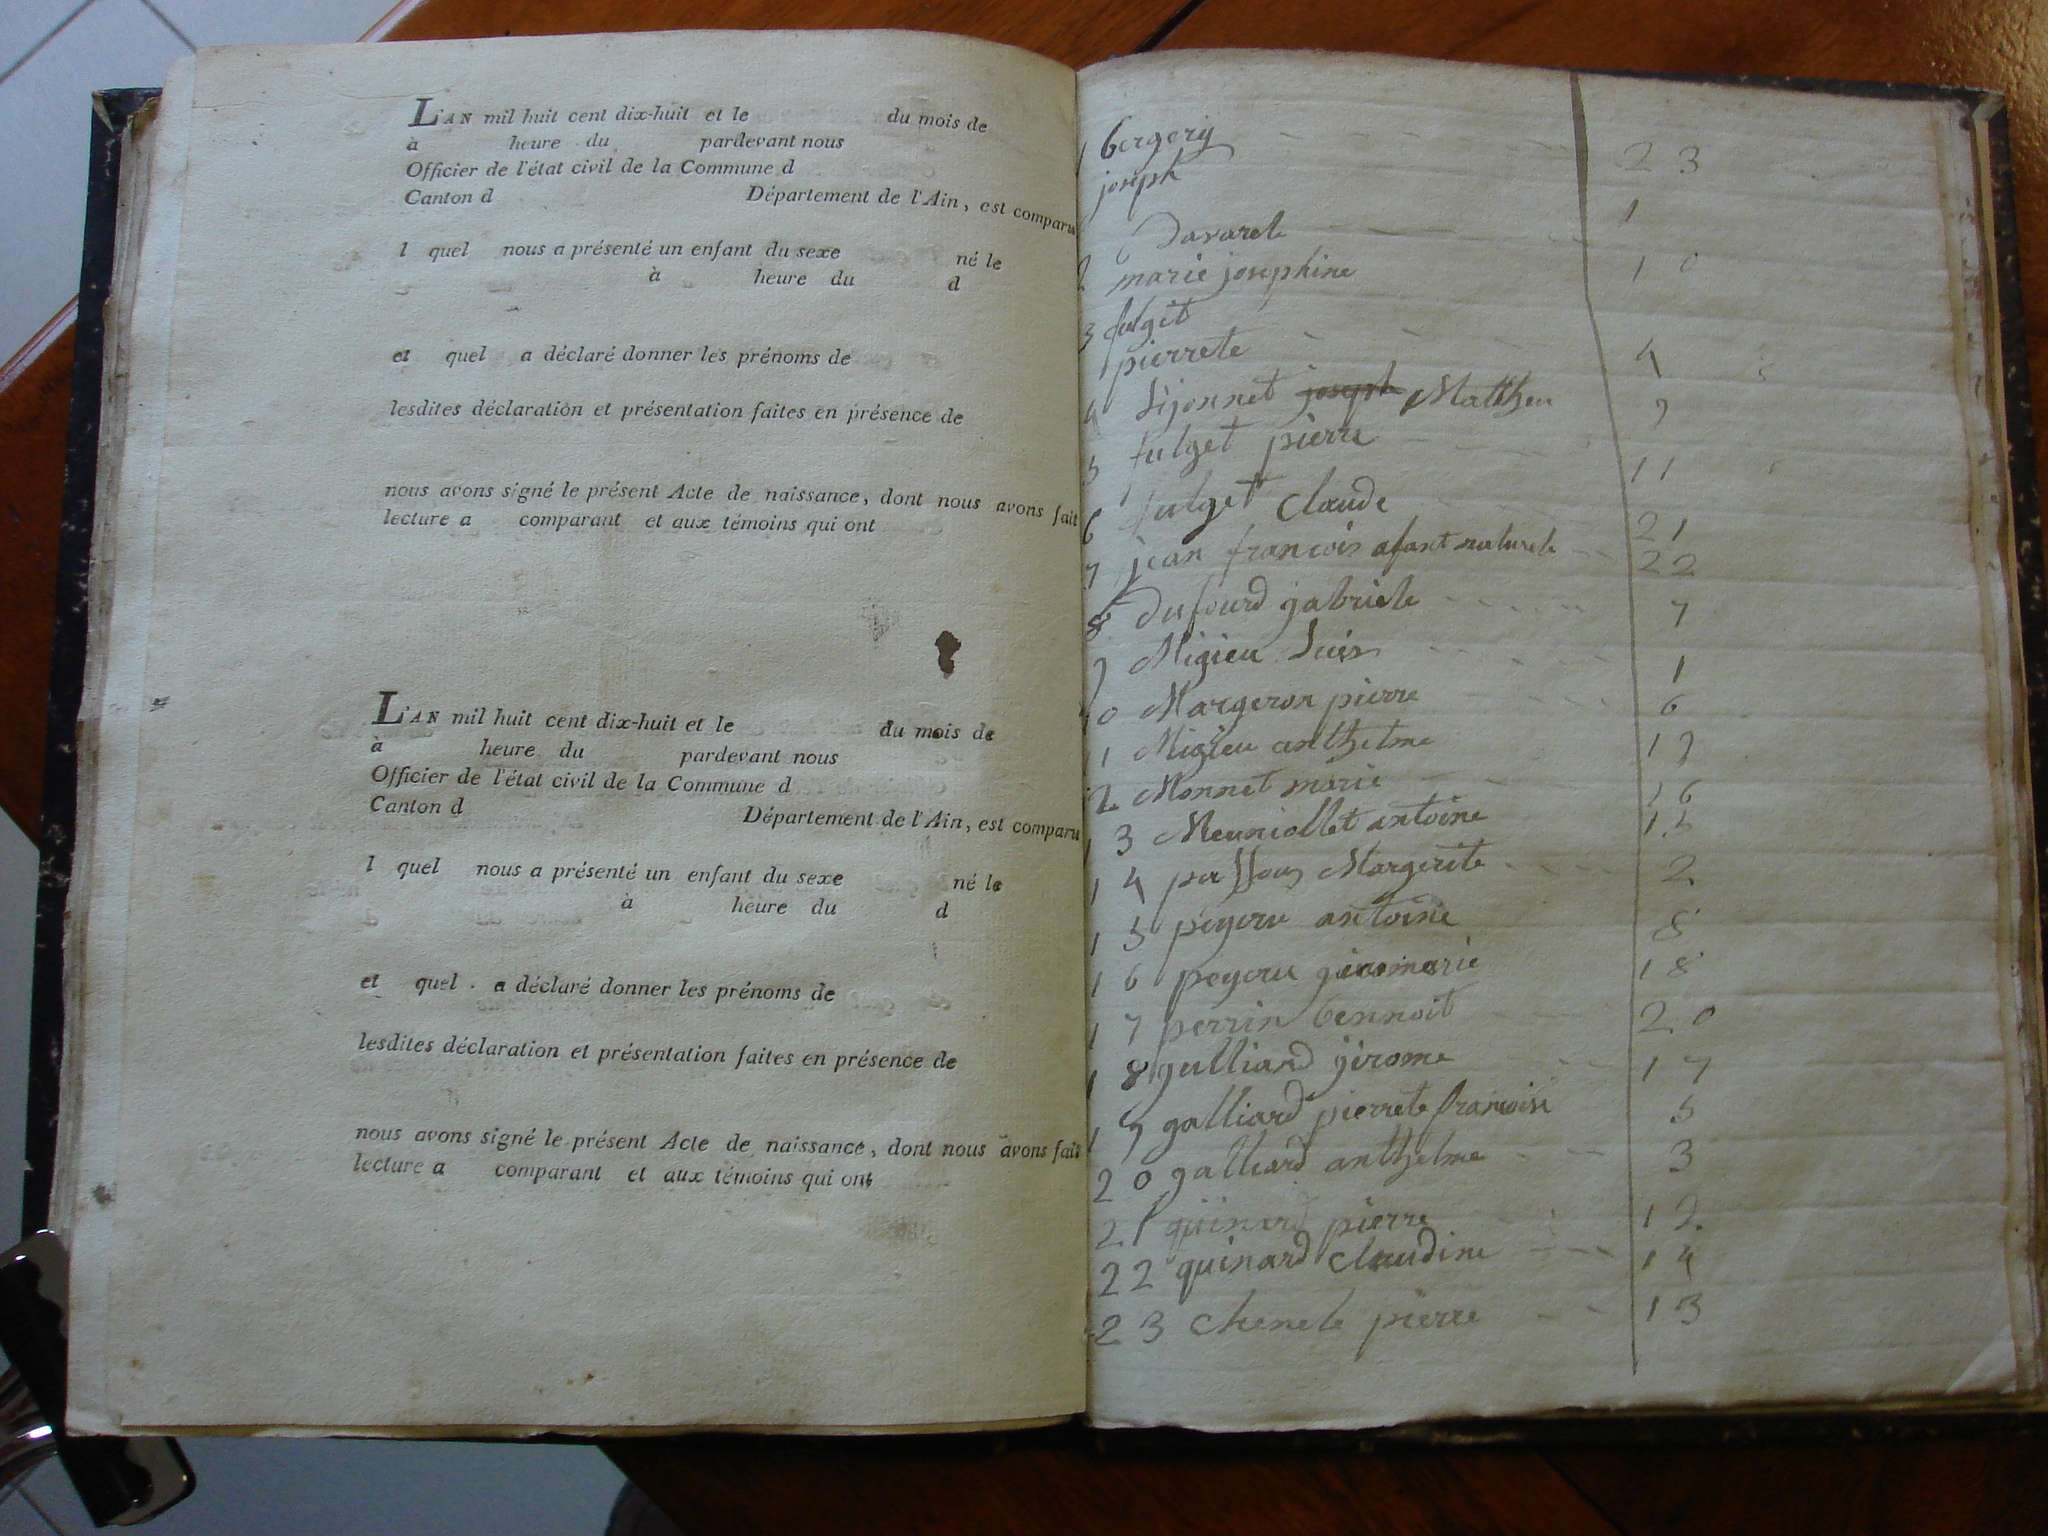 L'AN mil huit cent dix-huit et le du mois de
à heure du pardevant nous
Officier de l'état civil de la Commune d
Canton d Département de l'Ain, est comparu
l quel nous a présenté un enfant du sexe né le
à heure du d
et quel a déclaré donner les prénoms de
lesdites déclaration et présentation faites en présence de
nous avons signé le présent Acte de naissance, dont nous avons fait
lecture a comparant et aux témoins qui ont
L'AN mil huit cent dix-huit et le du mois de
à heure du pardevant nous
Officier de l'état civil de la Commune d
Canton d Département de l'Ain, est comparu
l quel nous a présenté un enfant du sexe né le
à heure du d
et quel a déclaré donner les prénoms de
lesdites déclaration et présentation faites en présence de
nous avons signé le présent Acte de naissance, dont nous avons fait
lecture a comparant et aux témoins qui ont
1 bergery 23
joseph
Davarele 1
2 marie josephine 10
3
pierrete 4
4 joseph Mattheu 9
5 fulget pierre 11
6 fulget Claude 21
7 jean francois naturele 22
8 Dufourd gabriele 7
9 Migieu Luis 1
10 Margeron pierre 6
11 Migieu anthelme 19
12 Monnet marie 16
13 Meuniollet antoine 15
14 Margerite 2
15 peyeru antoine 8
16 peyeru 18
17 perrin bennoit 20
18 gulliard jirome 17
19 galliard pierrete francoise 5
20 galliard anthelme 3
21 quinard pierre 12
22 quinard Claudine 14
23 Chenele pierre 13